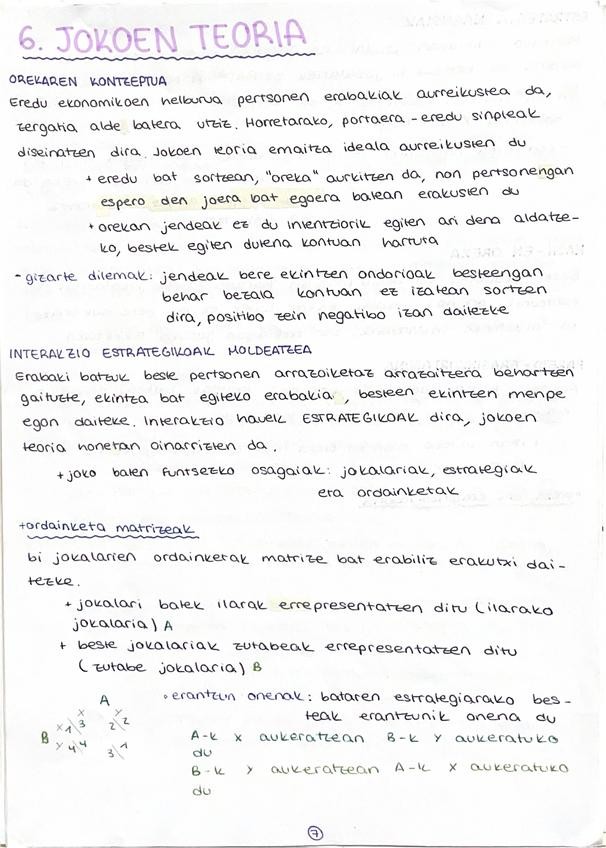 6. JOKOEN TEORIA
OREKAREN KONTZEPTUA
Eredu ekonomikoen helburua pertsonen erabakiak aurreikustea da,
zergatia alde batera utziz. Horretarako, portaera-eredu sinpleak
diseinatzen dira. Jokoen teoria emaitza ideala aurreikusten du
+ eredu bat sortzean, "oreka" aurkitzen da, non pertsonengan
espero den joera bat egoera batean erakusten du
+ orekan jendeak ez du intentziorik egiten ari dena aldatze-
ko, bestek egiten dutena kontuan hartuta
- gizarte dilemak: jendeak bere ekintzen ondorioak besteengan
behar bezala kontuan ez izatean sortzen
dira, positibo zein negatibo izan daitezke
INTERAKZIO ESTRATEGIKOAK MOLDEATZEA
Erabaki batzuk beste pertsonen arrazoiketaz arrazoitzera behartzen
gaituzte, ekintza bat egiteko erabakia, besteen ekintzen menpe
egon daiteke. Interakzio hauek ESTRATEGIKOAK dira, jokoen
teoria honetan oinarrizten da.
+ joko baten funtsezko osagaiak: jokalariak, estrategiak
era ordainketak
+ordainketa matrizeak
bi jokalarien ordainketak matrize bat erabiliz erakutxi dai-
tezke.
+ jokalari batek ilarak errepresentatzen ditu (ilarako
jokalaria) A
+ beste jokalariak zutabeak errepresentatzen ditu
(zutabe jokalaria) B
• erantzun onenak: bataren estrategiarako bes-
teak erantzunik onena du
A-k x aukeratzean B-k y aukeratuko
du
B-k y aukeratzean A-k x aukeratuko
du
A
x y
B x 1 3 2 2
y 4 4 3 1
7